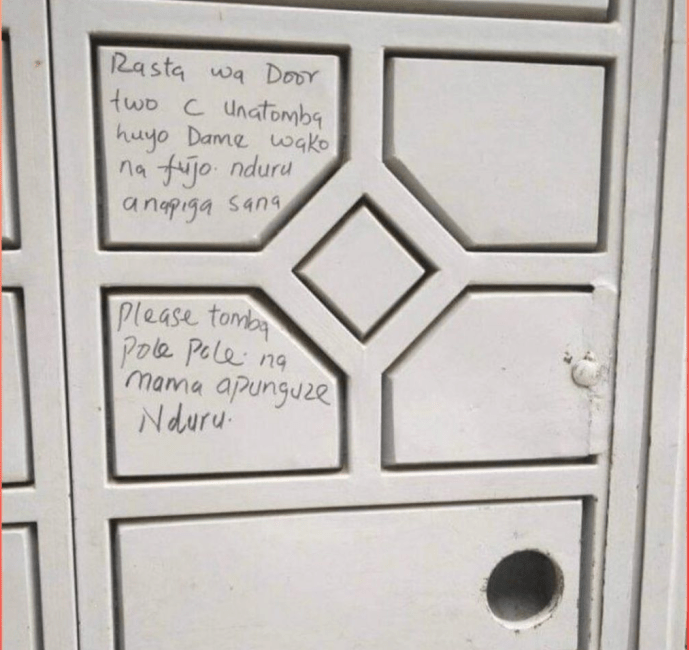 Rasta wa Door
two C unatomba
huyo Dame wako
na fujo. nduru
anapiga sana
please tomba
pole pole. na
mama apunguze
Nduru.